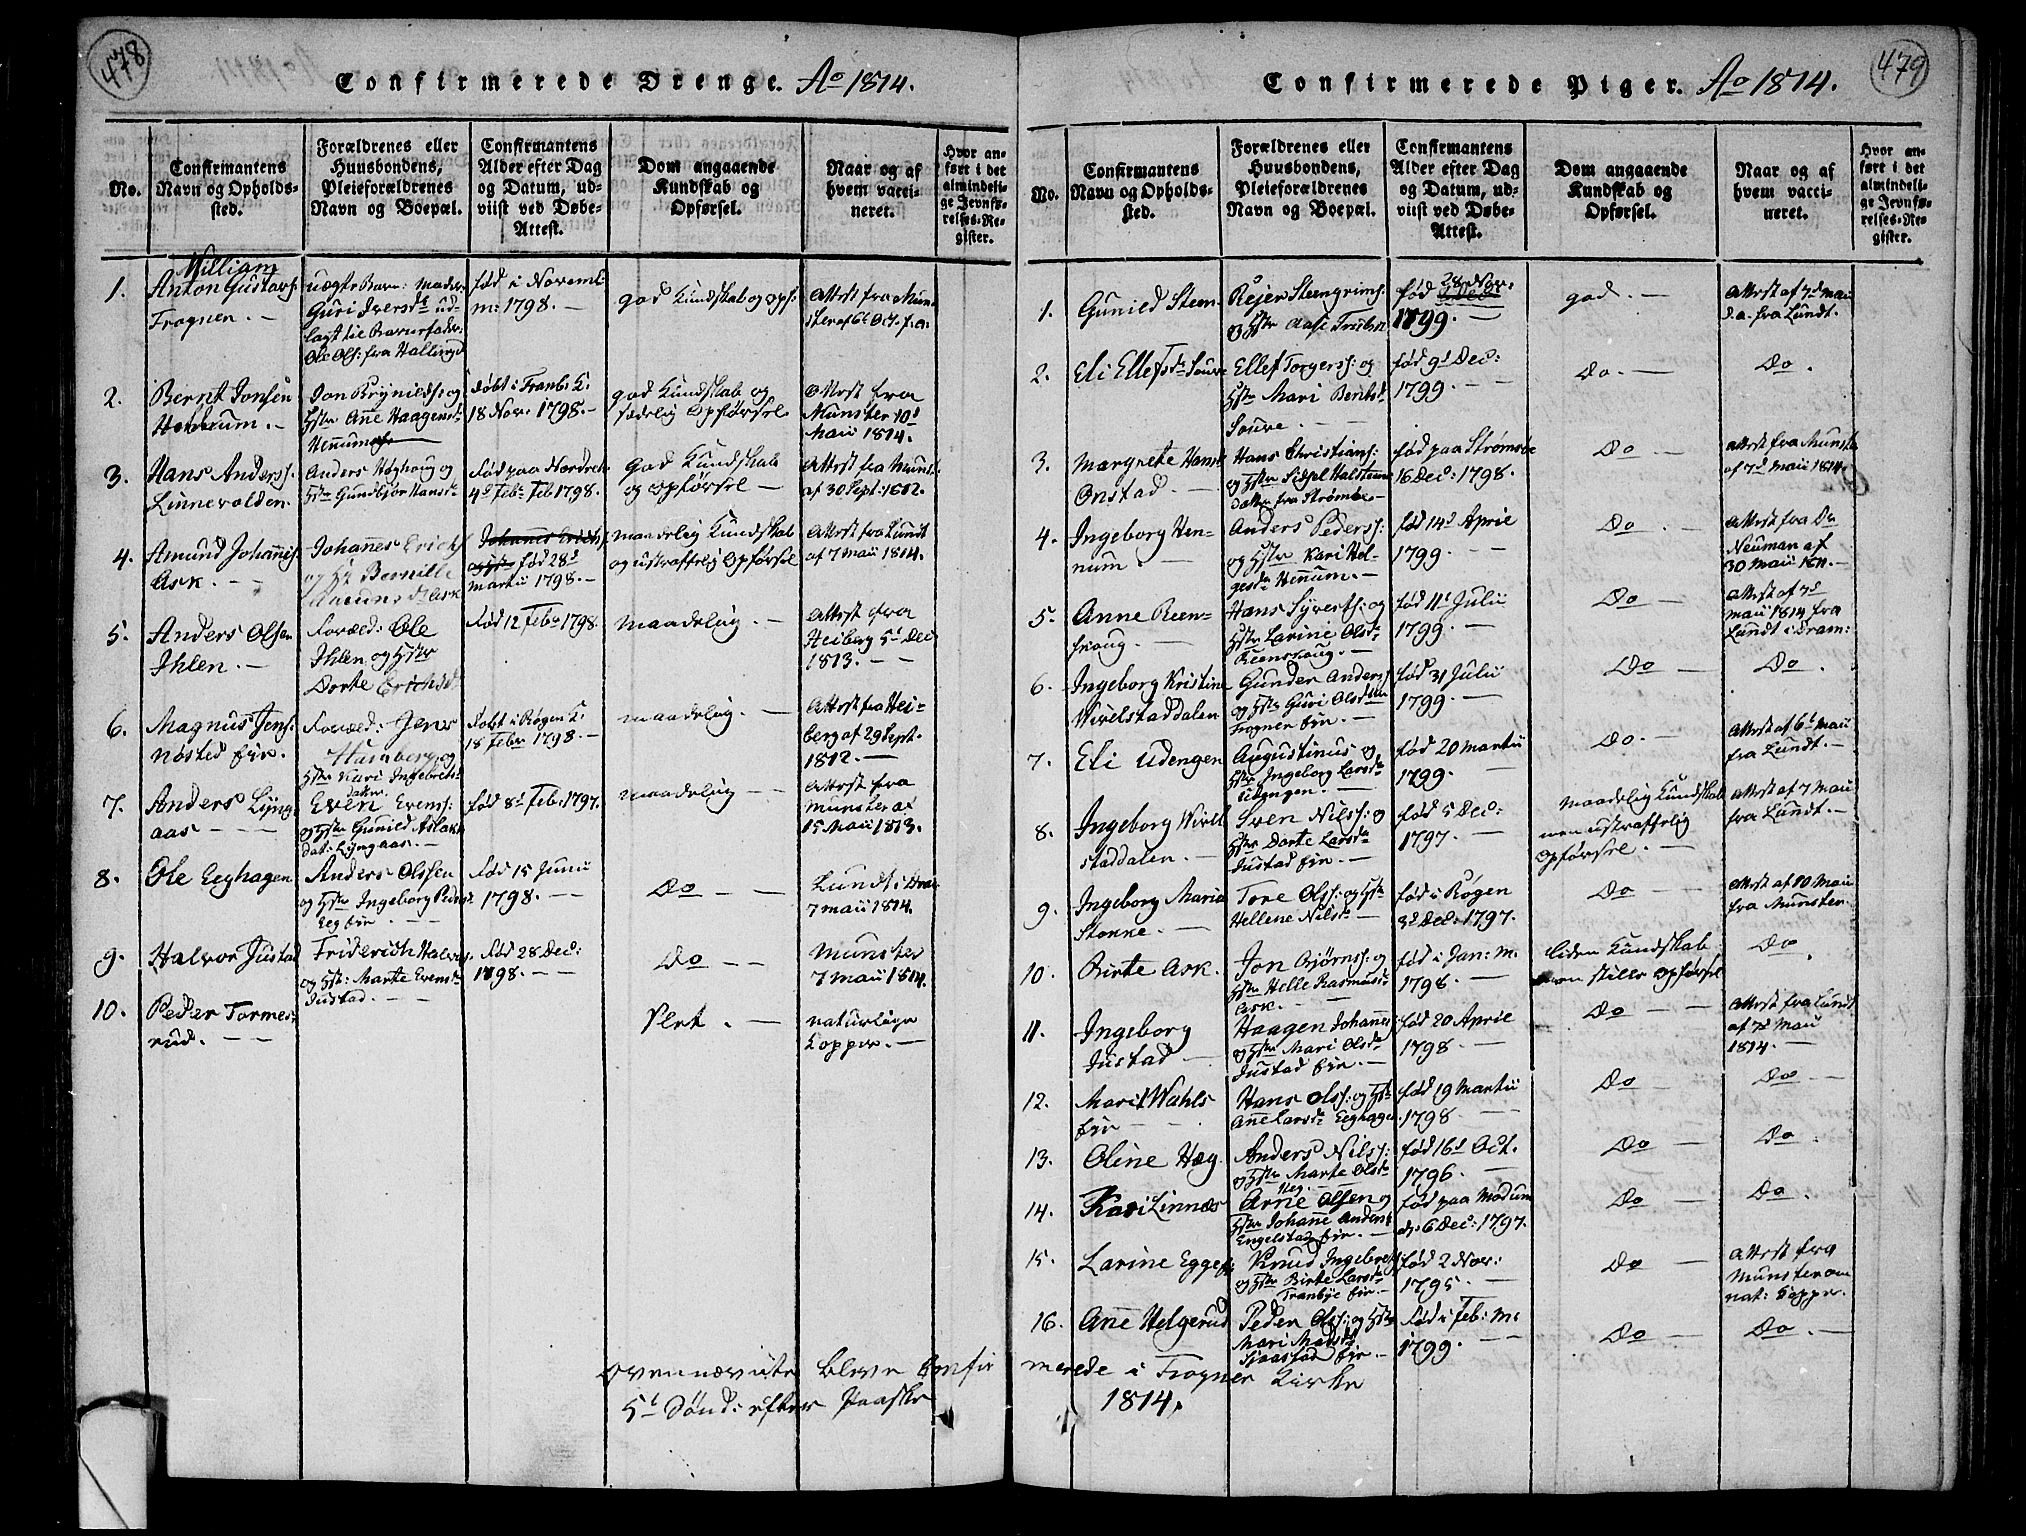 478
Confirmerede Drenge. Ao 1814.
No.
Confirmantens
Navn og Opholds-
sted.
Forældrenes eller
Huusbondens,
Pleieforældrenes
Navn og Boepæl.
Confirmantens
Alder efter Dag
og Datum, ud-
viist ved Døbe-
Attest.
Dom angaaende
Kundskab og
Opførsel.
Naar og af
hvem vacci-
neret.
Hvor an-
ført i det
almindeli-
ge Jevnfø-
relses-Re-
gister.
1.
William
Anton Gustavs:
Frognen. —
uægte Barn: Moder
Guri Iversdr ud-
lagt til Barnefader:
Ole Ols: fra Hallingd
fød i Novemb:
m: 1798. —
god Kundskab og opf:
Attest fra Mun-
ster af 6t Oct. f.a.
2.
Bernt Jonsen
Hennum. —
Jon Brynilds: og
Hstr Ane Haagensdr
Hennum
døbt i Franb: K:
18 Nov: 1798. —
god Kundskab og
sædelig Opførsel
Attest fra
Munster 10d
Maii 1814.
3.
Hans Anders:
Linnevolden.
Anders Høghoug og
Hstr Gundbjør Hansdr
fød paa Nordre
4d Feb: 1798.
God Kundskab
og opførsel —
Attest fra Munst:
af 30 Sept: 1812.
4.
Amund Johannis:
Ask. — —
Johannes Erichs
og Hst Bernille
Amunsdr Ask
Johannes Erichs:
og Hstr fød 28d
Martii 1798. —
maadelig Kundskab
og ustraffelig Opførsel
Attest fra Lundt
af 7 Maii 1814.
5.
Anders Olsen
Ihlen. —
Foræld: Ole
Ihlen og Hstr
Dorte Erichsd
fød 12 Feb: 1798.
maadelig. —
Attest fra
Heiberg 5t Dec
1813. — —
6.
Magnus Jens:
Nøsted Eje.
Foræld: Jens
Hambærg og
Hstr Kari Ingebrets
datter
døbt i Røgen K:
18 Febr 1798. —
maadelig. —
Attest fra Hei-
berg af 29 Sept.
1812. —
7.
Anders Lyng-
aas — — —
Even Evens:
og Hstr Gunild Aslaks
dat: Lyngaas. —
fød 8d Feb: 1797.
maadelig —
Attest fra
Munster af
15 Maii 1813.
8.
Ole Eeghagen
Anders Olssen
og Hstr Ingeborg Peders
Eeg Eje. — —
fød 15 Junii
1798. —
Do — —
Lundt i Dra:
7 Maii 1814.
9.
Halvor Justad
Friderich Halvors:
og Hst: Marte Evensdr
Justad. — —
fød 28 Dec:
1798. — —
Do — —
Munster
7 Maii 1814.
10.
Peder Tormes-
rud. — —
Slet. —
naturlige
Kopper. —
Ovennævnte bleve Confir
5t Sønd: efter Paaske
479
Confirmerede Piger. Ao 1814.
No.
Confirmantens
Navn og Opholds-
sted.
Forældrenes eller
Huusbondens,
Pleieforældrenes
Navn og Boepæl.
Confirmantens
Alder efter Dag
og Datum, ud-
viist ved Døbe-
Attest.
Dom angaaende
Kundskab og
Opførsel.
Naar og af
hvem vacci-
neret.
Hvor an-
ført i det
almindeli-
ge Jevnfø-
relses-Re-
gister.
1.
Gunild Stem
Rejer Steengrims:
og Hstr Aase
fød 28 Nov:
1799. —
god. —
Attest af 7d Maii
d.a. fra Lundt.
2.
Eli Ellefsdr Souve
Ellef Torgers: og
Hstr Mari Berthsd
Souve. —
fød 9d Dec:
1799. — —
Do. —
Do.
3.
Margrete Hansd
Onstad. —
Hans Christians:
og Hstr Sidsel Halstens
datter fra Strømsø —
fød paa Strømsøe
16 Dec: 1798.
Do —
Attest fra Munster
af 7d Maii 1814.
4.
Ingeborg Hen-
num. —
Anders Peders:
og Hstr Kari Hel-
gesdr Hennum. —
fød 14d April
1799. — —
Do —
Attest fra Dr
Neuman af
30 Maii 1811. —
5.
Anne Reen-
skoug. —
Hans Syvests: og
Hstr Larine Olsdr
Reenskoug. —
fød 11t Julii
1799. —
Do —
Attest af 7d
Maii 1814 fra
Lundt i Dram:
6.
Ingeborg Kristine
Wivelstaddalen
Gunder Anders:
og Hstr Guri Olsdtr
Frogner Eje. —
fød 31 Julii
1799. —
Do —
Do.
7.
Eli Udengen
Augustinus og
Hstr Ingeborg Larsdr
Udengen. —
fød 20 Martii
1799. —
Do. —
Attest af 6t Maii
fra Lundt. —
8.
Ingeborg Wivel-
staddalen. —
Sven Nils: og
Hstr Dorte Larsdr
Justad Eje. —
fød 5 Dec:
1797. —
maadelig Kundskab
men ustraffelig
opførsel. —
Attest af 7 Maii
fra Lundt. —
9.
Ingeborg Maria
Stokke. —
Tore Ols: og Hstr
Hellene Nilsdr —
fød i Røgen
3d Dec: 1797.
Do —
Attest af 10 Maii
fra Munster.
10.
Birte Ask.
Jon Bjørns: og
Hstr Helle Rasmusd
Ask. — —
fød i Jan: m.
1798. —
liden Kundskab
men stille opførsel
Do.
11.
Ingeborg
Justad —
Haagen Johannes:
og Hstr Mari Olsdr
Justad Eje. —
fød 20 April
1798. —
Do —
Attest fra Lundt
af 7d Maii
1814. —
12.
Marit Wahls
Eje —
Hans Ols: og Hstr
Ane Larsdr Eeghagen
fød 19 Martii
1798 —
Do —
Do —
13.
Oline Hæg
Anders Nils:
og Hstr Marte Olsdr
Heg. —
fød 16d Oct.
1796. —
Do —
Do.
14.
Kari Linnes
Arne Olsen og
Hstr Johanne Anders
Engelstad Eje. —
fød paa Modum
d: 6 Dec: 1797.
Do —
Do.
15.
Larine Egge
Knud Ingebrets:
og Hstr Birte Larsdr
Tranbye Eje. —
fød 2 Nov:
1795. —
Do —
Attest fra
Munster om
nat: Kopper.
16.
Ane Helgerud
Peder Ols: og Hstr
Mari Madsd
Sjaastad Eje. —
fød i Feb: m:
1799. —
Do —
Do. —
merede i Frogner Kirke
1814.